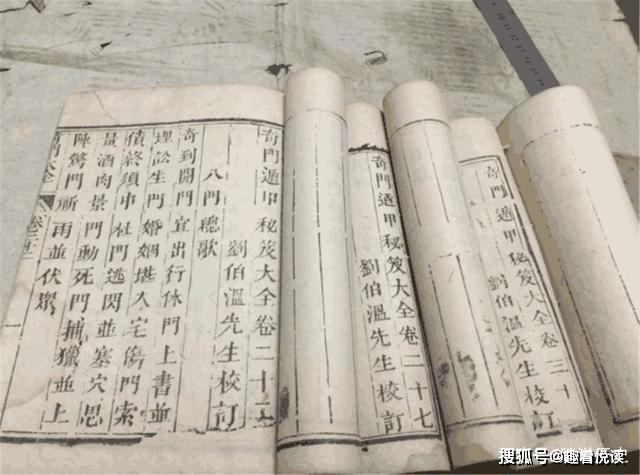 奇門遁甲秘笈大全卷三十
劉伯溫先生校訂
奇門遁甲秘笈大全卷二十七
劉伯溫先生校訂
奇門遁甲秘笈大全卷二十二
劉伯溫先生校訂
八門總歌
奇到開門宜出行休門上書並
理訟生門婚姻堪入宅傷門索
債終須中杜門逃閃並塞穴思
量酒肉景門動死門捕獵並上
陣驚門雨並伏眾
門大全
一
搜狐号@趣着悦读